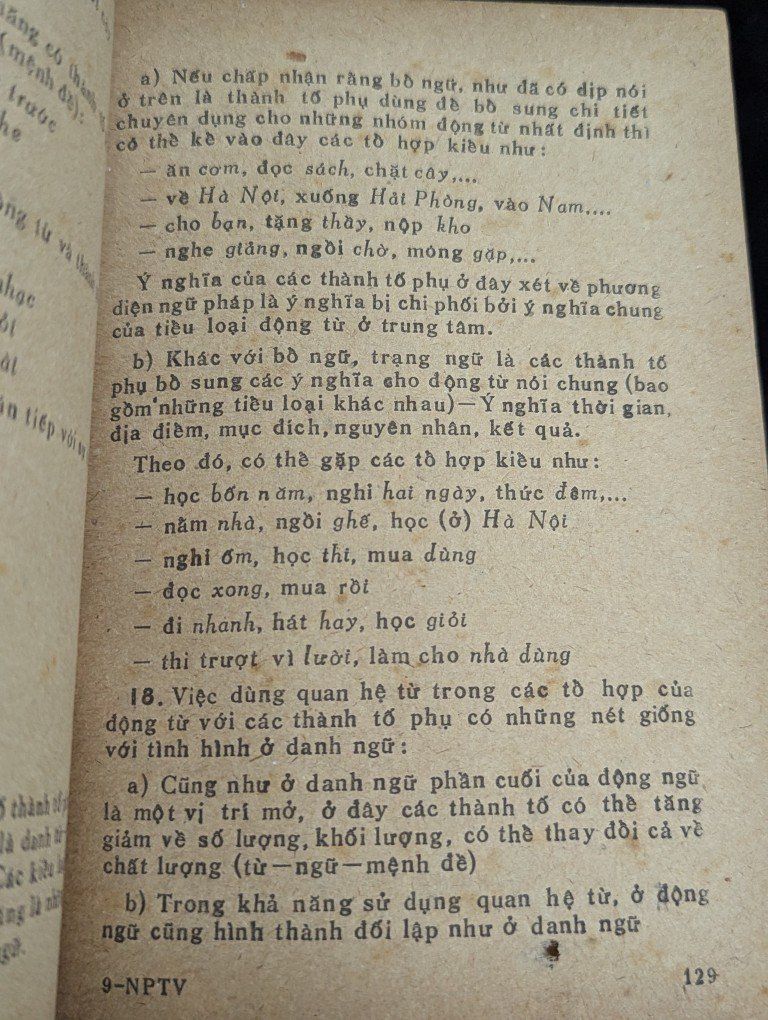 a) Nếu chấp nhận rằng bổ ngữ, như đã có dịp nói
ở trên là thành tố phụ dùng để bổ sung chi tiết
chuyên dụng cho những nhóm động từ nhất định thì
có thể kể vào đây các tổ hợp kiểu như:
— ăn cơm, đọc sách, chặt cây,...
— về Hà Nội, xuống Hải Phòng, vào Nam,...
— cho bạn, tặng thầy, nộp kho
— nghe giảng, ngồi chờ, mong gặp,...
Ý nghĩa của các thành tố phụ ở đây xét về phương
diện ngữ pháp là ý nghĩa bị chi phối bởi ý nghĩa chung
của tiểu loại động từ ở trung tâm.
b) Khác với bổ ngữ, trạng ngữ là các thành tố
phụ bổ sung các ý nghĩa cho động từ nói chung (bao
gồm những tiểu loại khác nhau)—Ý nghĩa thời gian,
địa điểm, mục đích, nguyên nhân, kết quả.
Theo đó, có thể gặp các tổ hợp kiểu như:
— học bốn năm, nghỉ hai ngày, thức đêm,...
— nằm nhà, ngồi ghế, học (ở) Hà Nội
— nghỉ ốm, học thi, mua dùng
— đọc xong, mua rồi
— đi nhanh, hát hay, học giỏi
— thi trượt vì lười, làm cho nhà dùng
18. Việc dùng quan hệ từ trong các tổ hợp của
động từ với các thành tố phụ có những nét giống
với tình hình ở danh ngữ:
a) Cũng như ở danh ngữ phần cuối của động ngữ
là một vị trí mở, ở đây các thành tố có thể tăng
giảm về số lượng, khối lượng, có thể thay đổi cả về
chất lượng (từ—ngữ—mệnh đề)
b) Trong khả năng sử dụng quan hệ từ, ở động
ngữ cũng hình thành đối lập như ở danh ngữ
9-NPTV
129